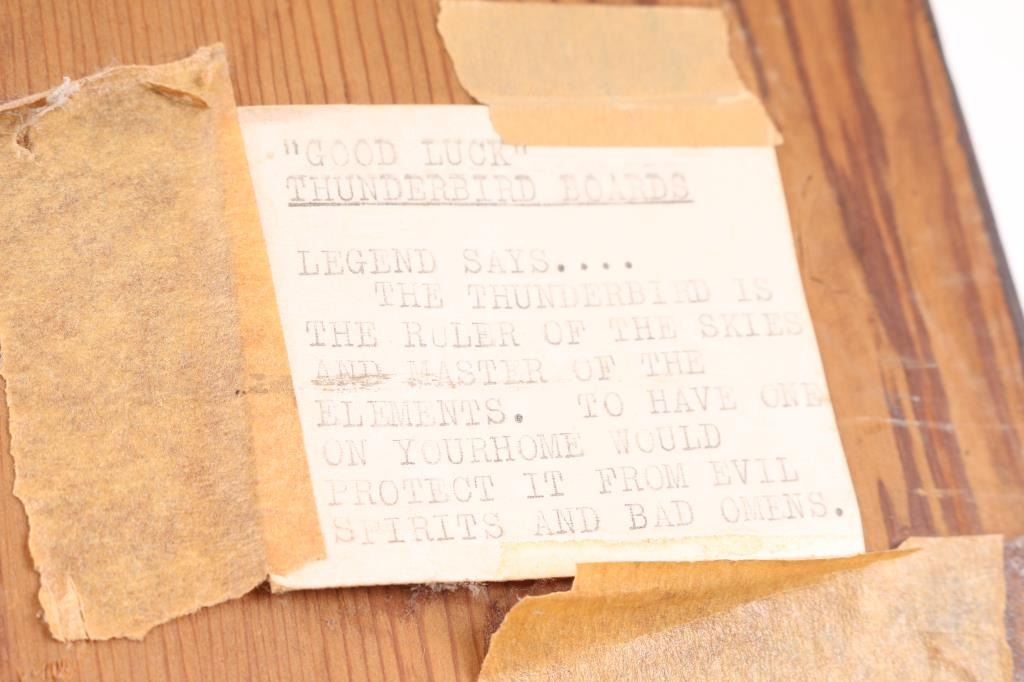 "GOOD LUCK"
THUNDERBIRD BOARDS
LEGEND SAYS....
THE THUNDERBIRD IS
THE RULER OF THE SKIES
AND MASTER OF THE
ELEMENTS. TO HAVE ONE
ON YOURHOME WOULD
PROTECT IT FROM EVIL
SPIRITS AND BAD OMENS.